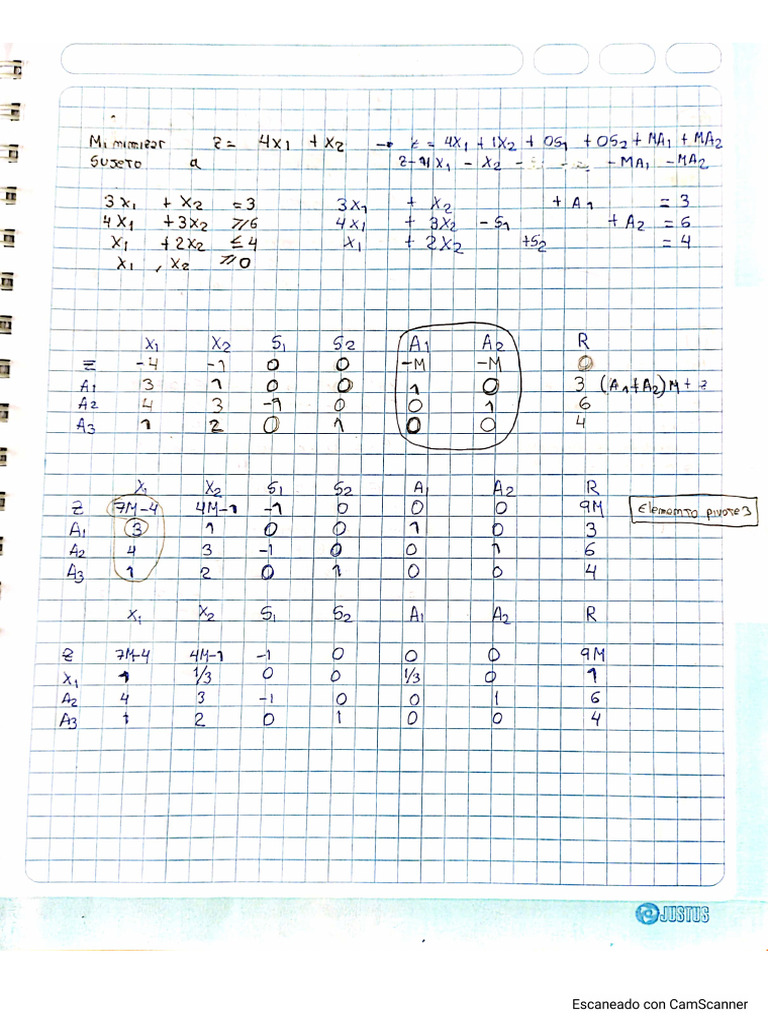 Minimizar Z= 4X1 + X2 → Z = 4X1 + 1X2 + 0S1 + 0S2 + MA1 + MA2
Sujeto a Z-4X1 - X2 - - -MA1 -MA2
3X1 + X2 =3 3X1 + X2 + A1 = 3
4X1 +3X2 ≥6 4X1 + 3X2 -S1 + A2 = 6
X1 +2X2 ≤4 X1 + 2X2 +S2 = 4
X1 , X2 ≥0
X1 X2 S1 S2 A1 A2 R
Z -4 -1 0 0 -M -M 0
A1 3 1 0 0 1 0 3 (A1+A2)M + z
A2 4 3 -1 0 0 1 6
A3 1 2 0 1 0 0 4
X1 X2 S1 S2 A1 A2 R
Z 7M-4 4M-1 -1 0 0 0 9M Elemento pivote 3
A1 3 1 0 0 1 0 3
A2 4 3 -1 0 0 1 6
A3 1 2 0 1 0 0 4
X1 X2 S1 S2 A1 A2 R
Z 7M-4 4M-1 -1 0 0 0 9M
X1 1 1/3 0 0 1/3 0 1
A2 4 3 -1 0 0 1 6
A3 1 2 0 1 0 0 4
JUSTUS
Escaneado con CamScanner